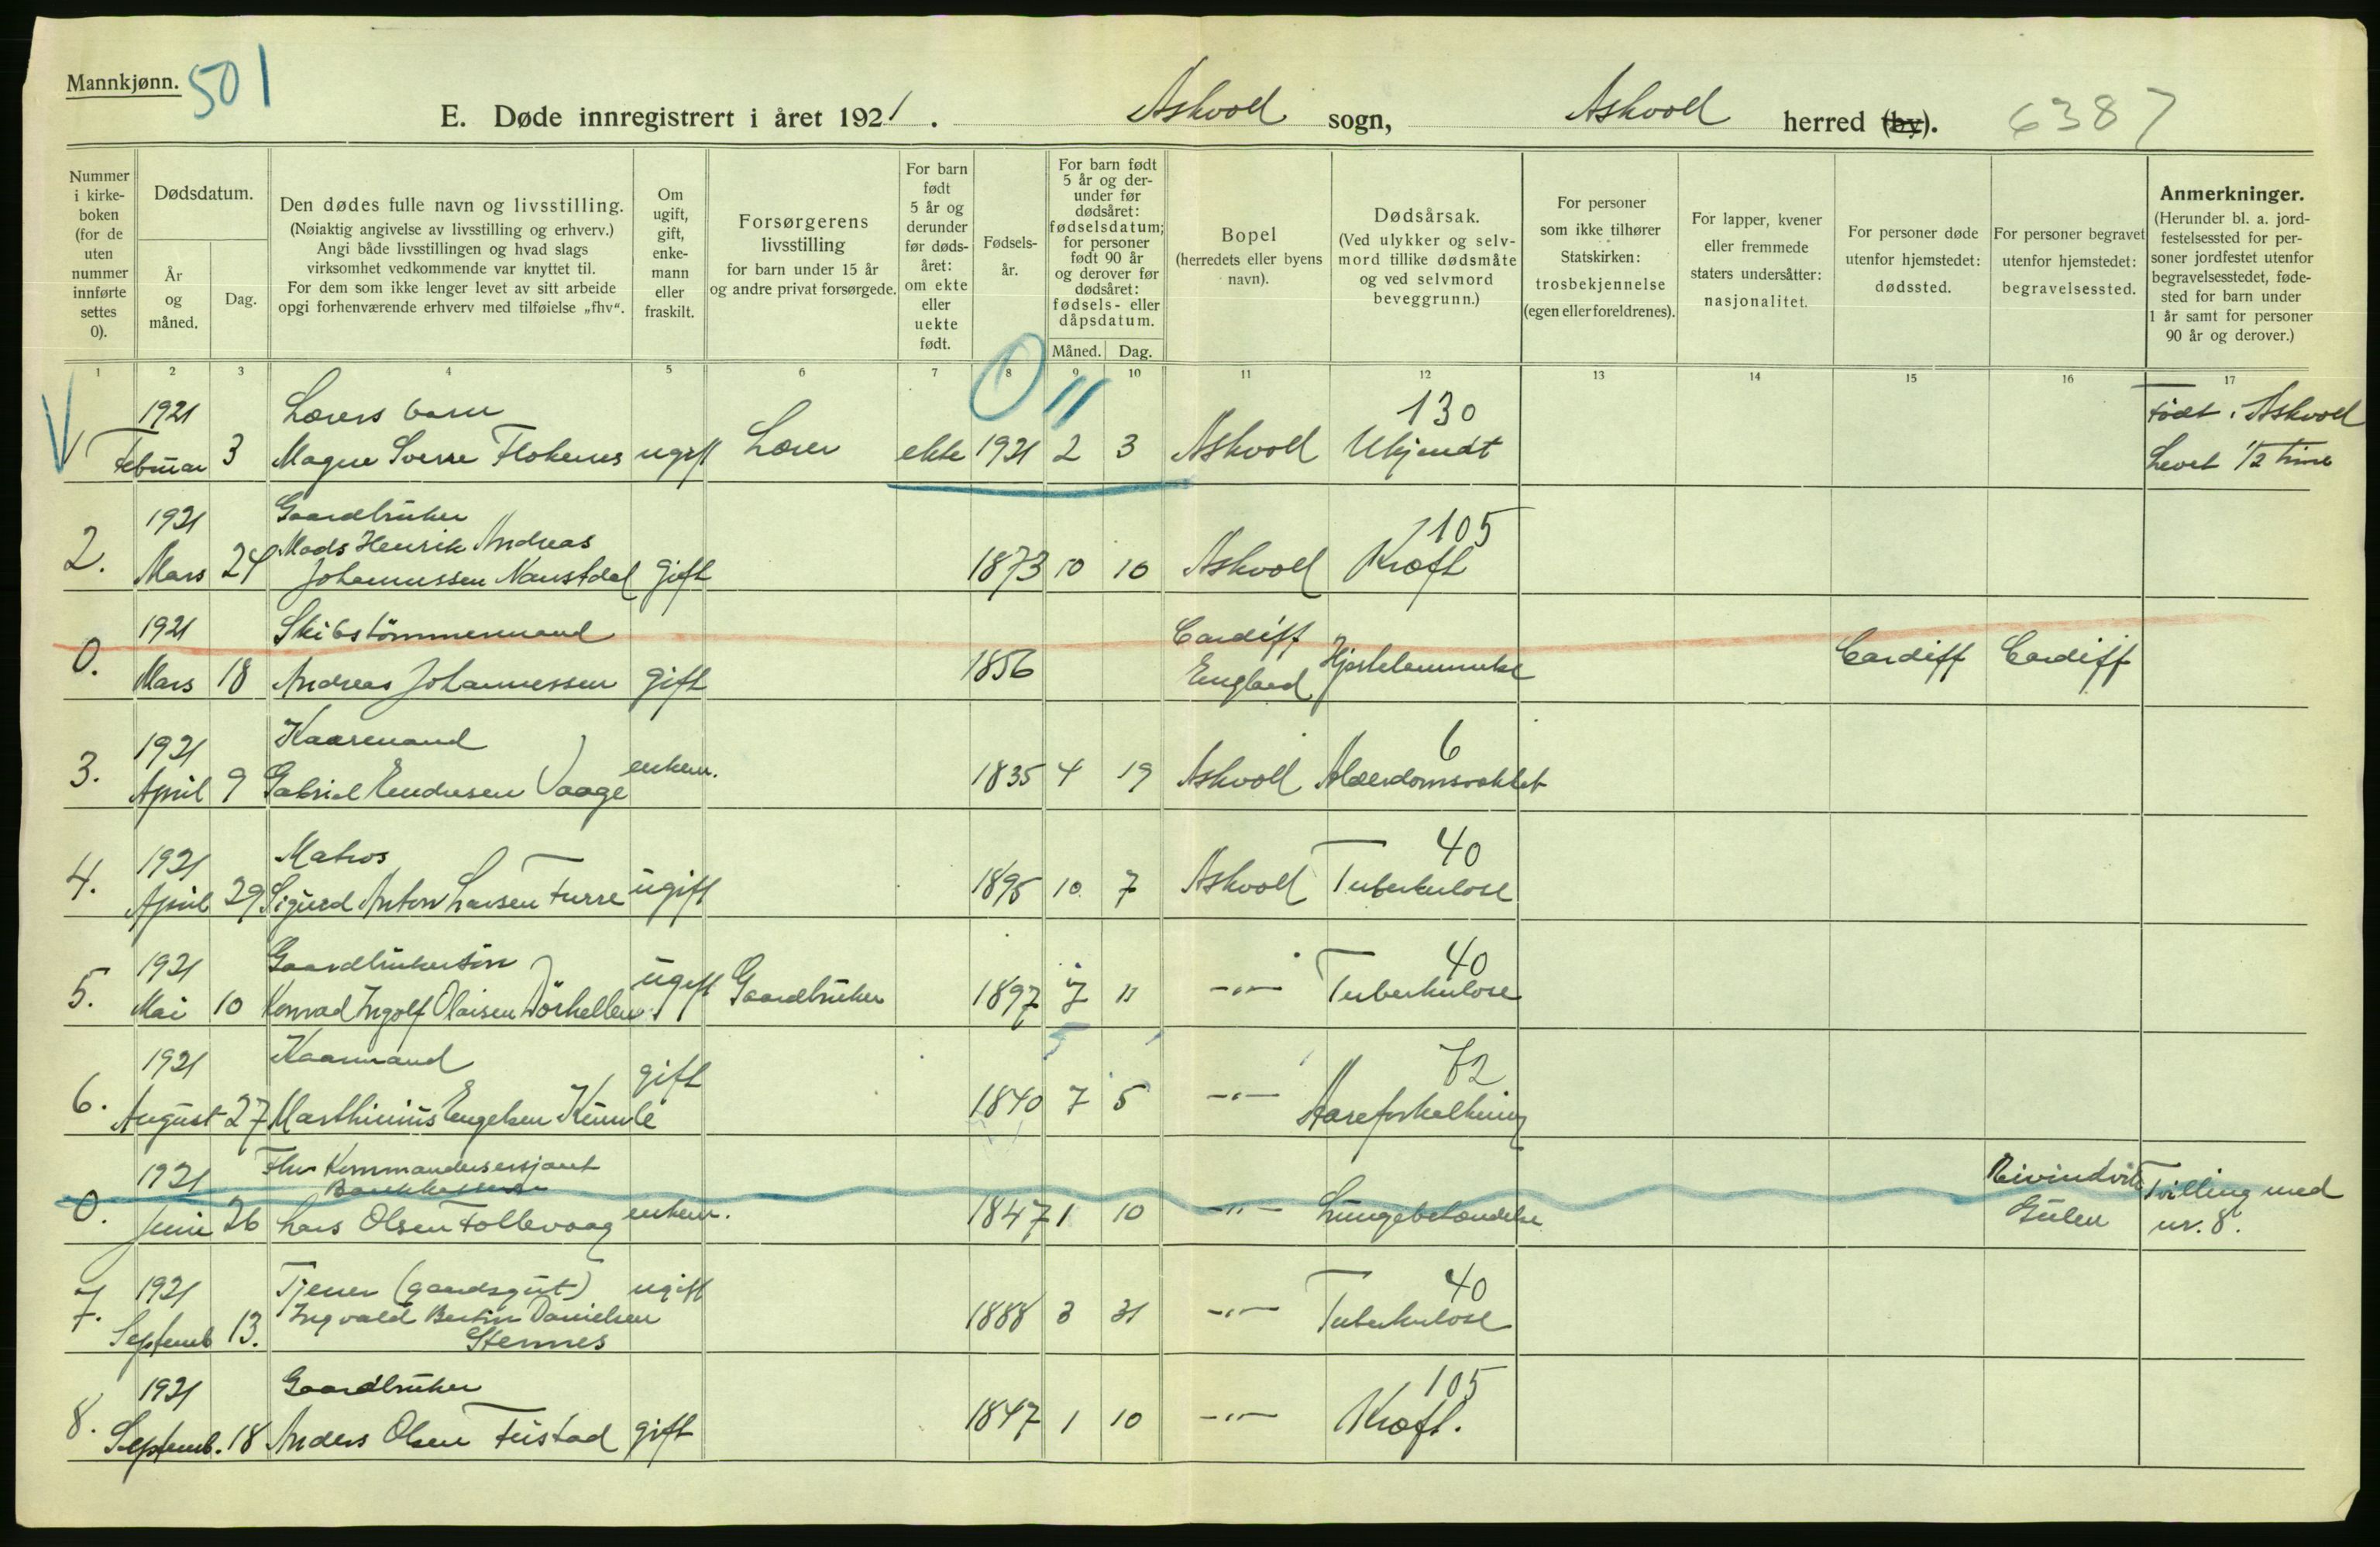 Mannkjønn.
501
E. Døde innregistrert i året 1921. Askvoll sogn, Askvoll herred (by).
6387
Nummer i kirke-boken (for de uten nummer innførte settes 0).
Dødsdatum.
År og måned.
Dag.
Den dødes fulle navn og livsstilling.
(Nøiaktig angivelse av livsstilling og erhverv.)
Angi både livsstillingen og hvad slags
virksomhet vedkommende var knyttet til.
For dem som ikke lenger levet av sitt arbeide
opgi forhenværende erhverv med tilføielse „fhv“.
Om ugift, gift, enke-mann eller fraskilt.
Forsørgerens livsstilling
for barn under 15 år
og andre privat forsørgede.
For barn født 5 år og derunder før døds-året: om ekte eller uekte født.
Fødsels-år.
For barn født 5 år og der-under før dødsåret: fødselsdatum; for personer født 90 år og derover før dødsåret: fødsels- eller dåpsdatum.
Måned.
Dag.
Bopel
(herredets eller byens navn).
Dødsårsak.
(Ved ulykker og selv-mord tillike dødsmåte og ved selvmord beveggrunn.)
For personer som ikke tilhører Statskirken: trosbekjennelse (egen eller foreldrenes).
For lapper, kvener eller fremmede staters undersåtter: nasjonalitet.
For personer døde utenfor hjemstedet: dødssted.
For personer begravet utenfor hjemstedet: begravelsessted.
Anmerkninger.
(Herunder bl. a. jord-festelsessted for per-soner jordfestet utenfor begravelsesstedet, føde-sted for barn under 1 år samt for personer 90 år og derover.)
1 2 3 4 5 6 7 8 9 10 11 12 13 14 15 16 17
0 11
1921 Lærers barn 130 Født i Askvoll
1 Februar 3 Magne Sverre Flokenes ugift Lærer ekte 1921 2 3 Askvoll Ukjendt Levet 1/2 time
1921 Gaardbruker 105
Mads Henrik Andreas
2. Mars 24 Johannessen Naustdal gift 1873 10 10 Askvoll Kræft
1921 Skibstömmermand Cardiff
0. Mars 18 Andreas Johannessen gift 1856 England Hjertelammelse Cardiff Cardiff
1921 Kaarmand 6
3. April 9 Gabriel Endresen Vaage enkem. 1835 4 19 Askvoll Alderdomsvakhet
1921 Matros 40
4. April 29 Sigurd Anton Larsen Furre ugift 1895 10 7 Askvoll Tuberkulose
1921 Gaardbrukersön 40
5. Mai 10 Konrad Ingolf Olaisen ugift Gaardbruker 1897 7 11 -"- Tuberkulose
1921 Kaarmand 72
6. August 27 Marthinius Engelsen gift 1840 7 5 -"- Aareforkalkning
1921 Fhv Kommandersersjant Eivindvik Tvilling med
Bankkasserer
0. Juni 26 Lars Olsen Follevaag enkem. 1847 1 10 -"- Lungebetændelse Gulen nr. 8.
1921 Tjener (gaardsgut) ugift 40
7. Septemb 13. Ingvald Bertin Danielsen 1888 3 31 -"- Tuberkulose
Stennes
1921 Gaardbruker 105
8. Septemb. 18 Anders Olsen gift 1847 1 10 -"- Kræft.